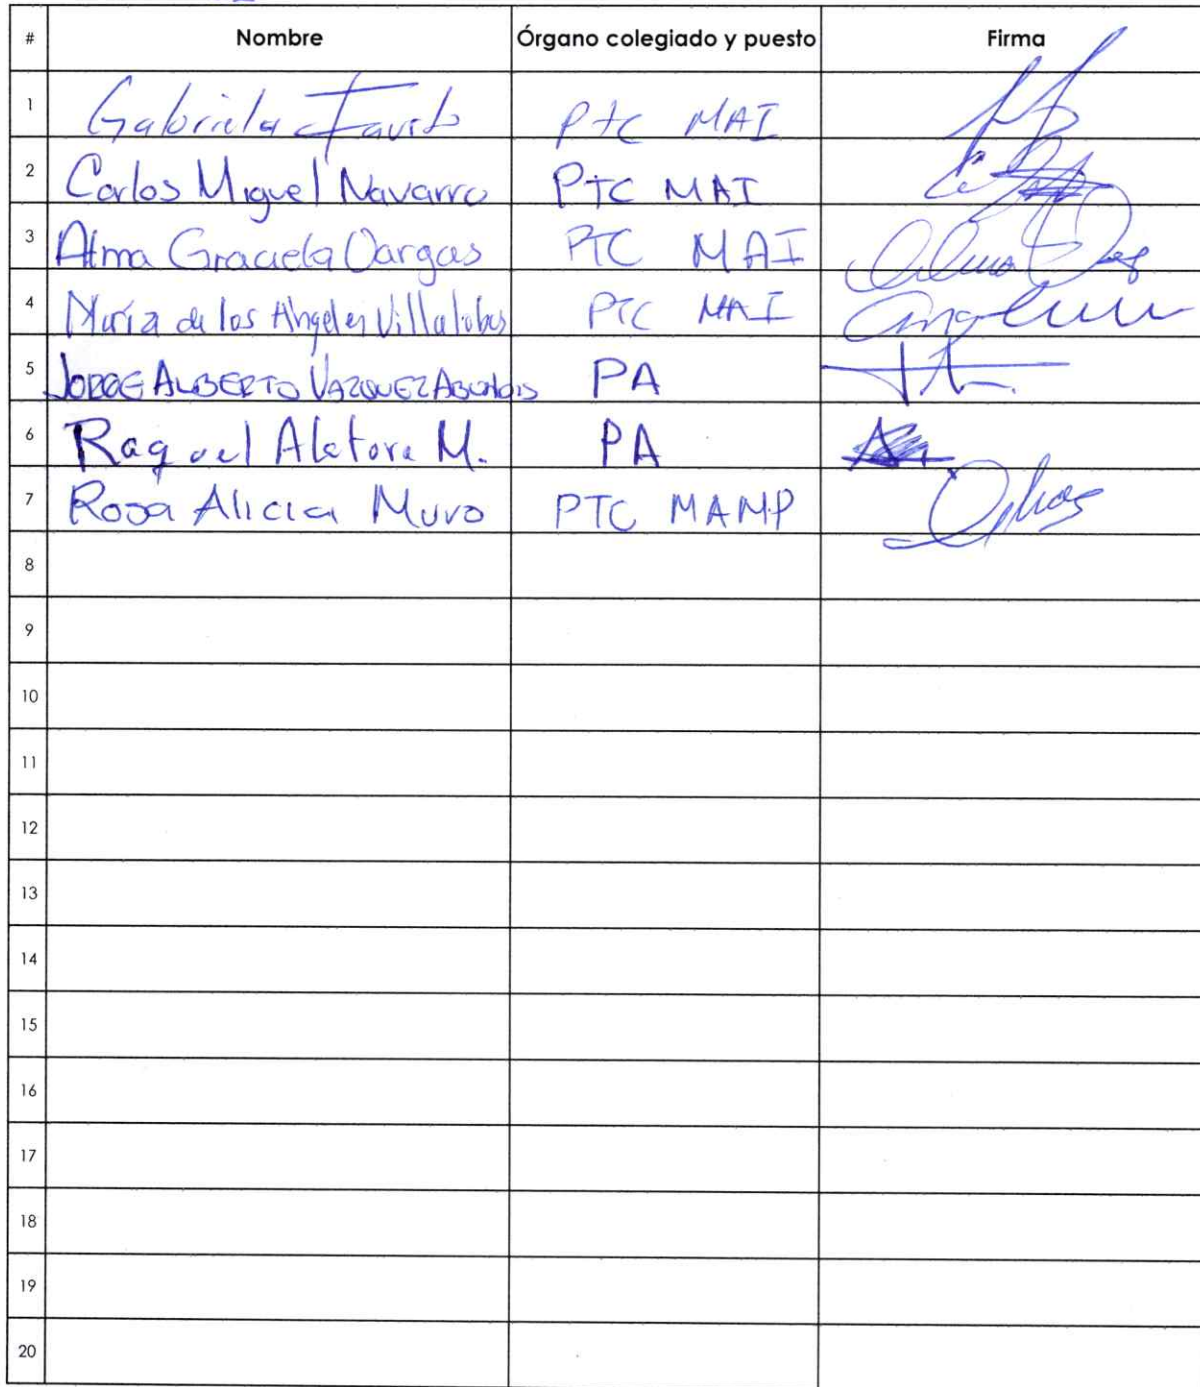 # Nombre Órgano colegiado y puesto Firma
1 Gabriela Fausto PTC MAI
2 Carlos Miguel Navarro PTC MAI
3 Alma Graciela Vargas PTC MAI
4 María de los Angeles Villalobos PTC MAI
5 JORGE ALBERTO VAZQUEZ PA
6 Raquel Alatorre M. PA
7 Rosa Alicia Muro PTC MAMP
8
9
10
11
12
13
14
15
16
17
18
19
20